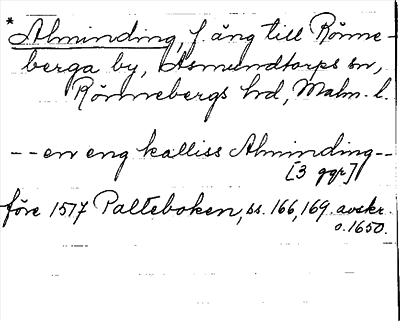 * Alminding, f. äng till Rönne-
berga by, Asmundtorps sn,
Rönnebergs hd, Malm. l.
-- en eng kalliss Alminding --
[3 ggr]
före 1517 Palteboken, ss. 166, 169. avskr.
o. 1650.